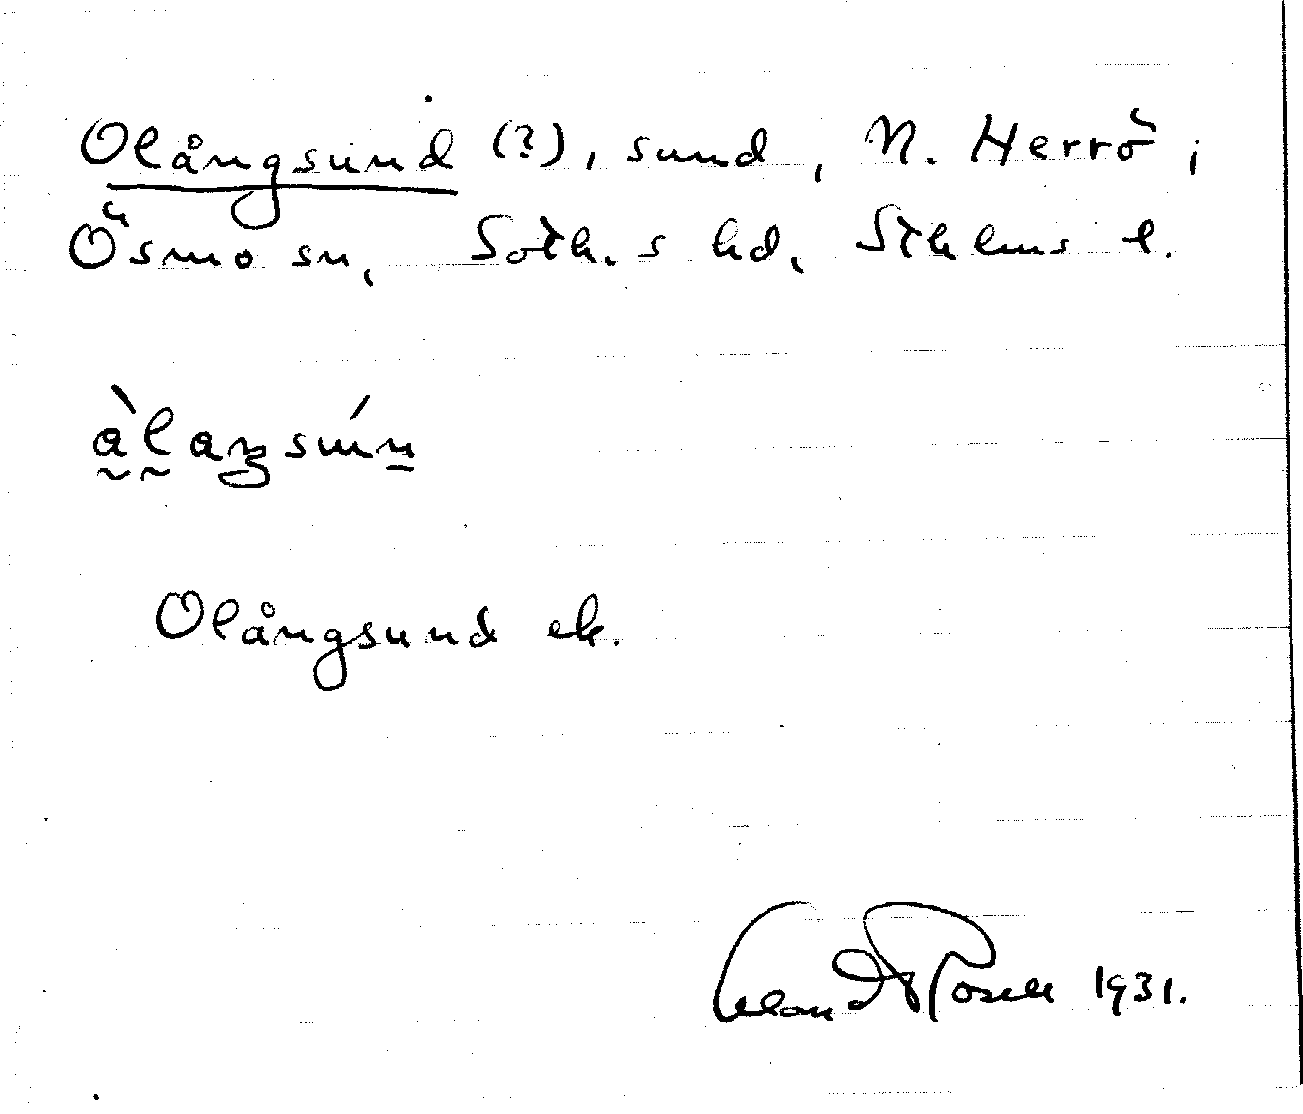 Olångsund (?), sund, N. Herrö,
Ösmo sn, Soth.s hd, Sthlms l.
àlaŋsún
Olångsund ek.
Erland Rosell 1931.